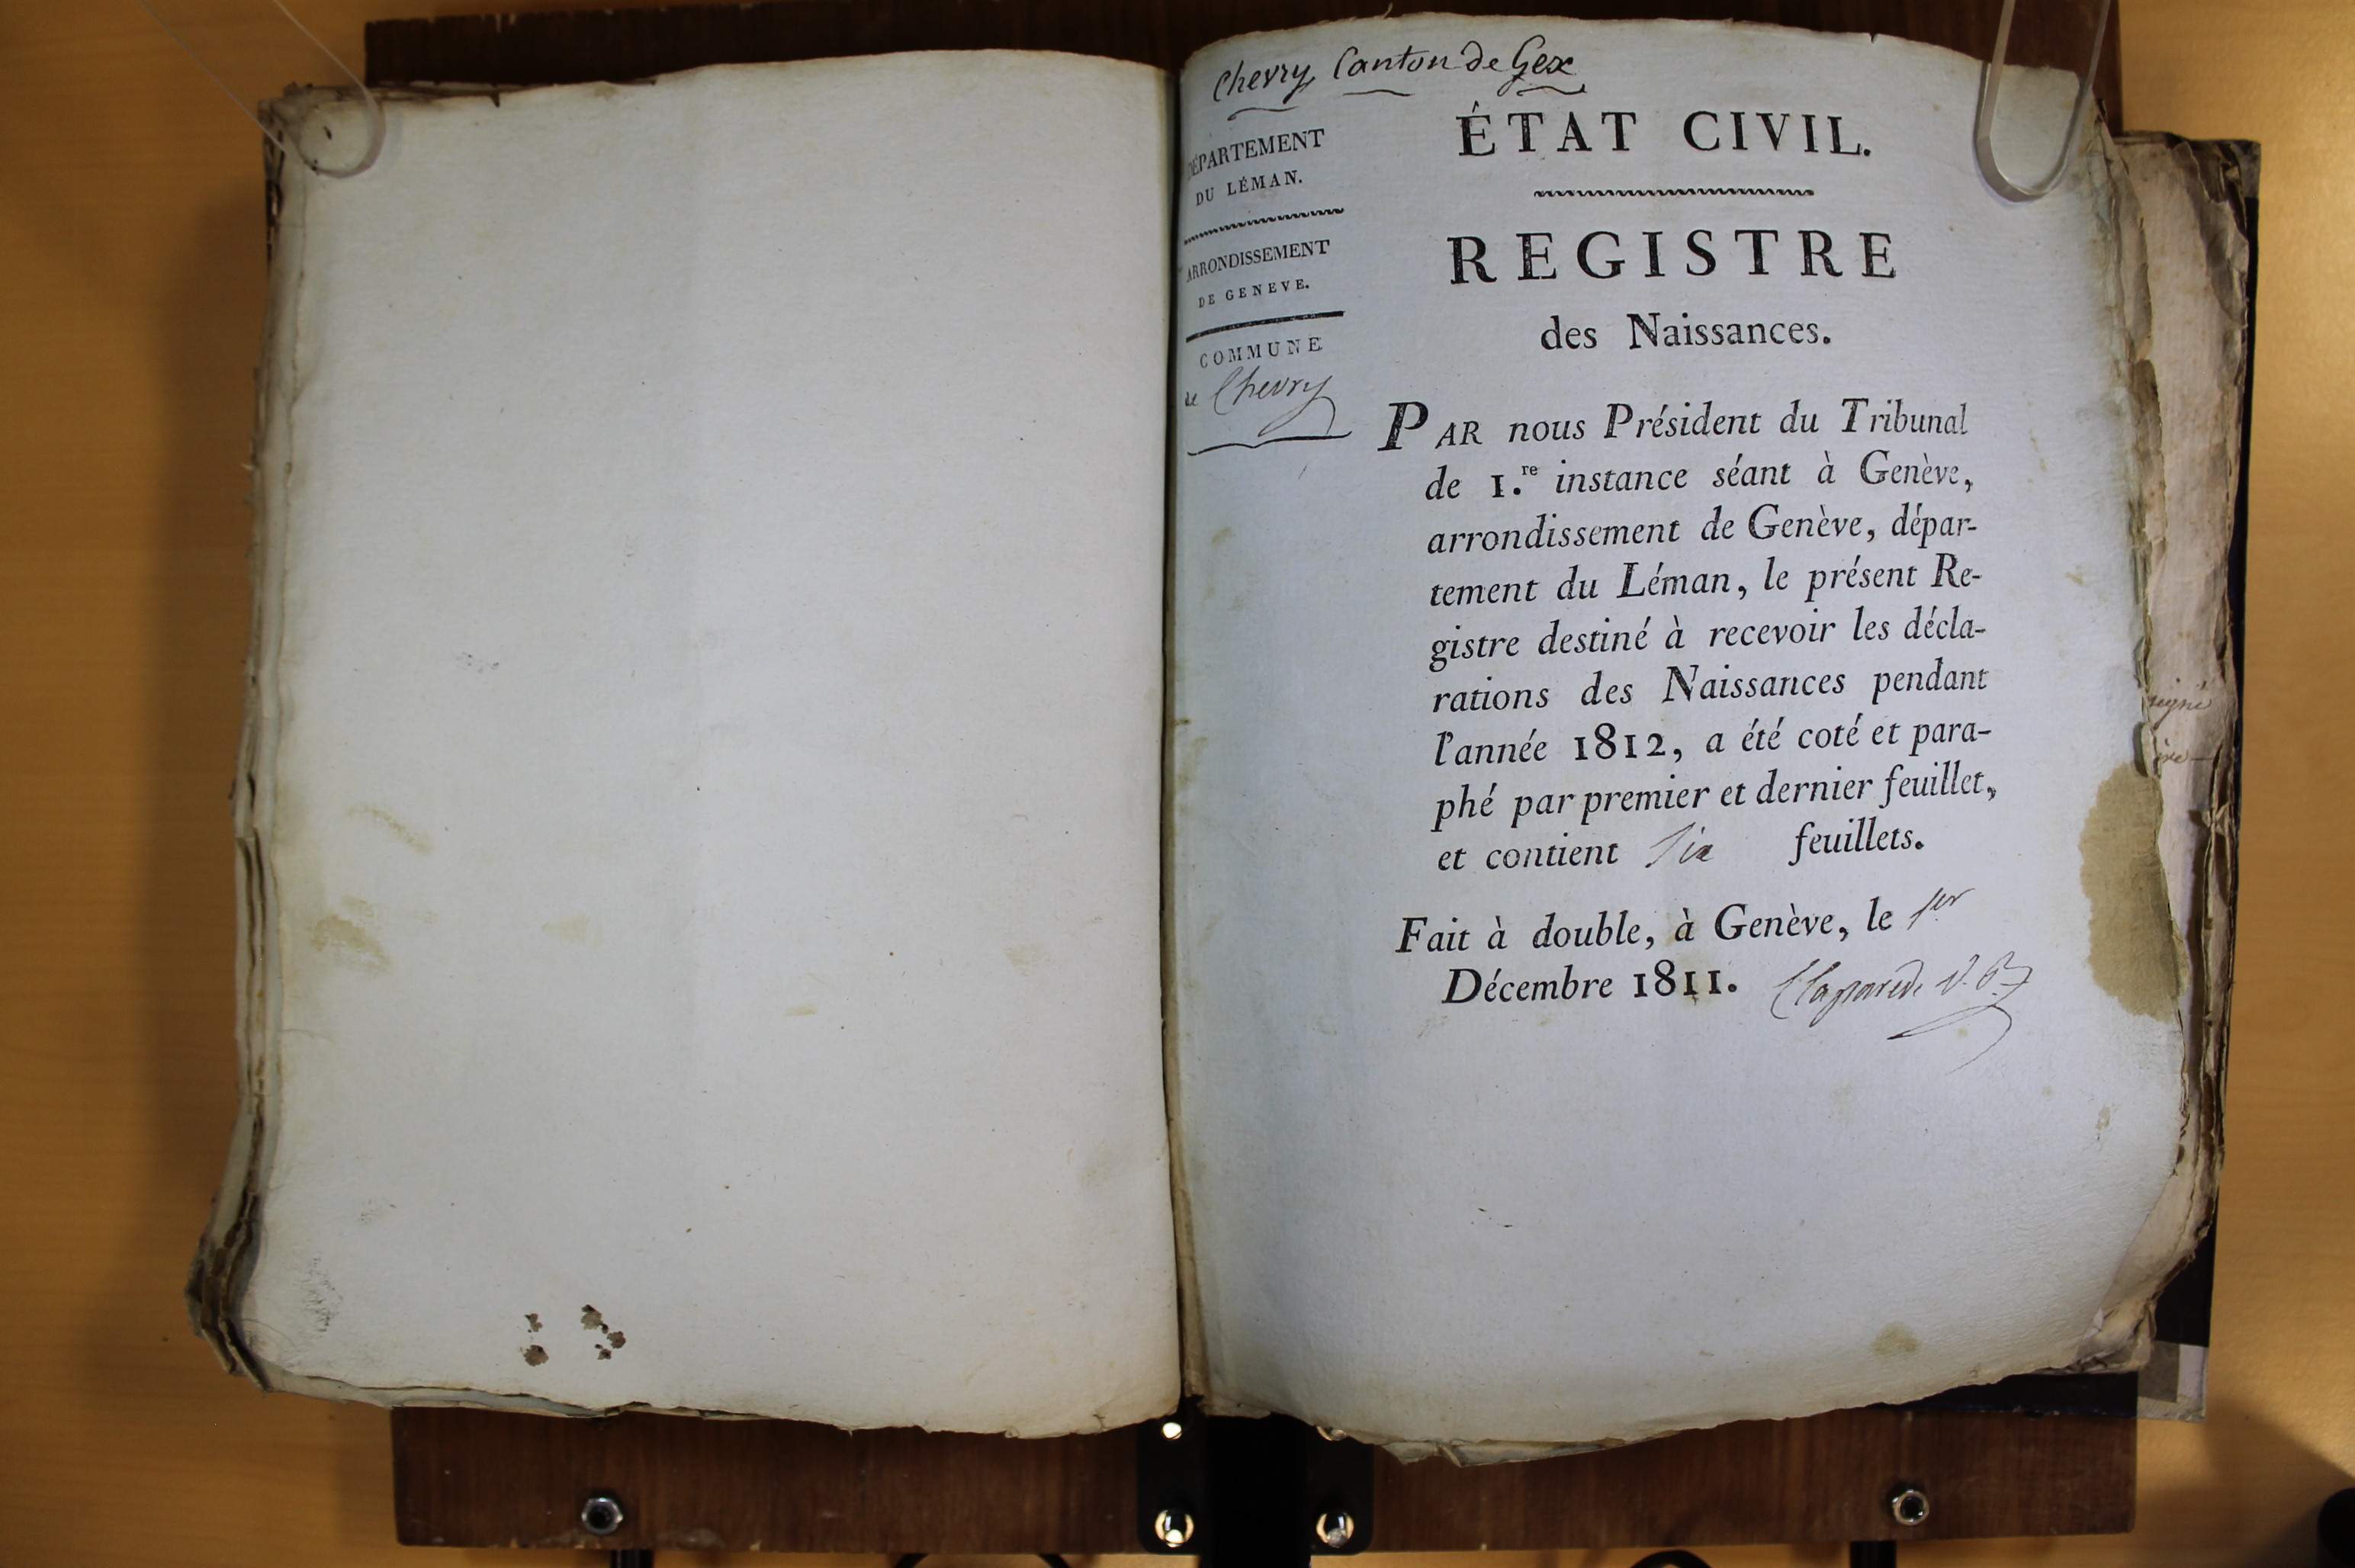 Chevry, Canton de Gex
DÉPARTEMENT
DU LÉMAN.
ARRONDISSEMENT
DE GENEVE.
COMMUNE
de Chevry
ÉTAT CIVIL.
REGISTRE
des Naissances.
PAR nous Président du Tribunal
de 1.re instance séant à Genève,
arrondissement de Genève, dépar-
tement du Léman, le présent Re-
gistre destiné à recevoir les décla-
rations des Naissances pendant
l'année 1812, a été coté et para-
phé par premier et dernier feuillet,
et contient Six feuillets.
Fait à double, à Genève, le 1er
Décembre 1811. Claparede V. P.